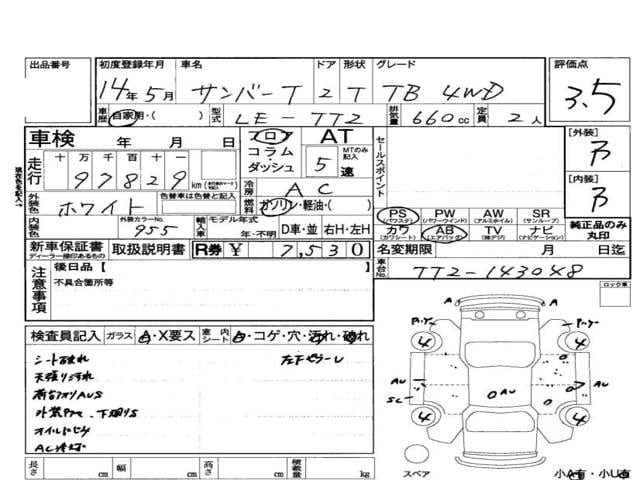 出品番号 初度登録年月 車名 ドア 形状 グレード 評価点
14年5月 サンバーT 2 T TB 4WD 3.5
車歴 自家用・( ) 型式 LE-TT2 排気量 660cc 定員 2人
車検 年 月 日
フロア コラム・ダッシュ
AT
MTのみ記入
5速
セールスポイント
[外装]
[内装]
現在色を記入→
走行 十 万 千 百 十 一
97829 km
冷房 AC
外装色 ホワイト 色替車は色替と記入
燃料 ガソリン・軽油・( )
PS (パワステ) PW (パワーウインド) AW (アルミホイル) SR (サンルーフ)
カワ (カワシート) AB (エアバッグ) TV (純テレビ) ナビ (ナビゲーション)
純正品のみ丸印
内装色 外装カラーNo. 955 輸入車 モデル年式 年・不明 D車・並 右H・左H
新車保証書 ディーラー捺印あるもの 取扱説明書 R券 ¥ 7,530
名変期限 月 日迄
注意事項 後日品【 】
不具合箇所等
車台No. TT2-143048
ロック車
検査員記入 ガラス A・X要ス 室内シート A・コゲ・穴・汚れ・破れ
シート破れ
天張り汚れ
荷台アオリAUS
オイルにじみ
A
A
4
4
AU
AU
AU
4
4
スペア
小A有・小U有
長さ cm 幅 cm 高さ cm 積載量 kg